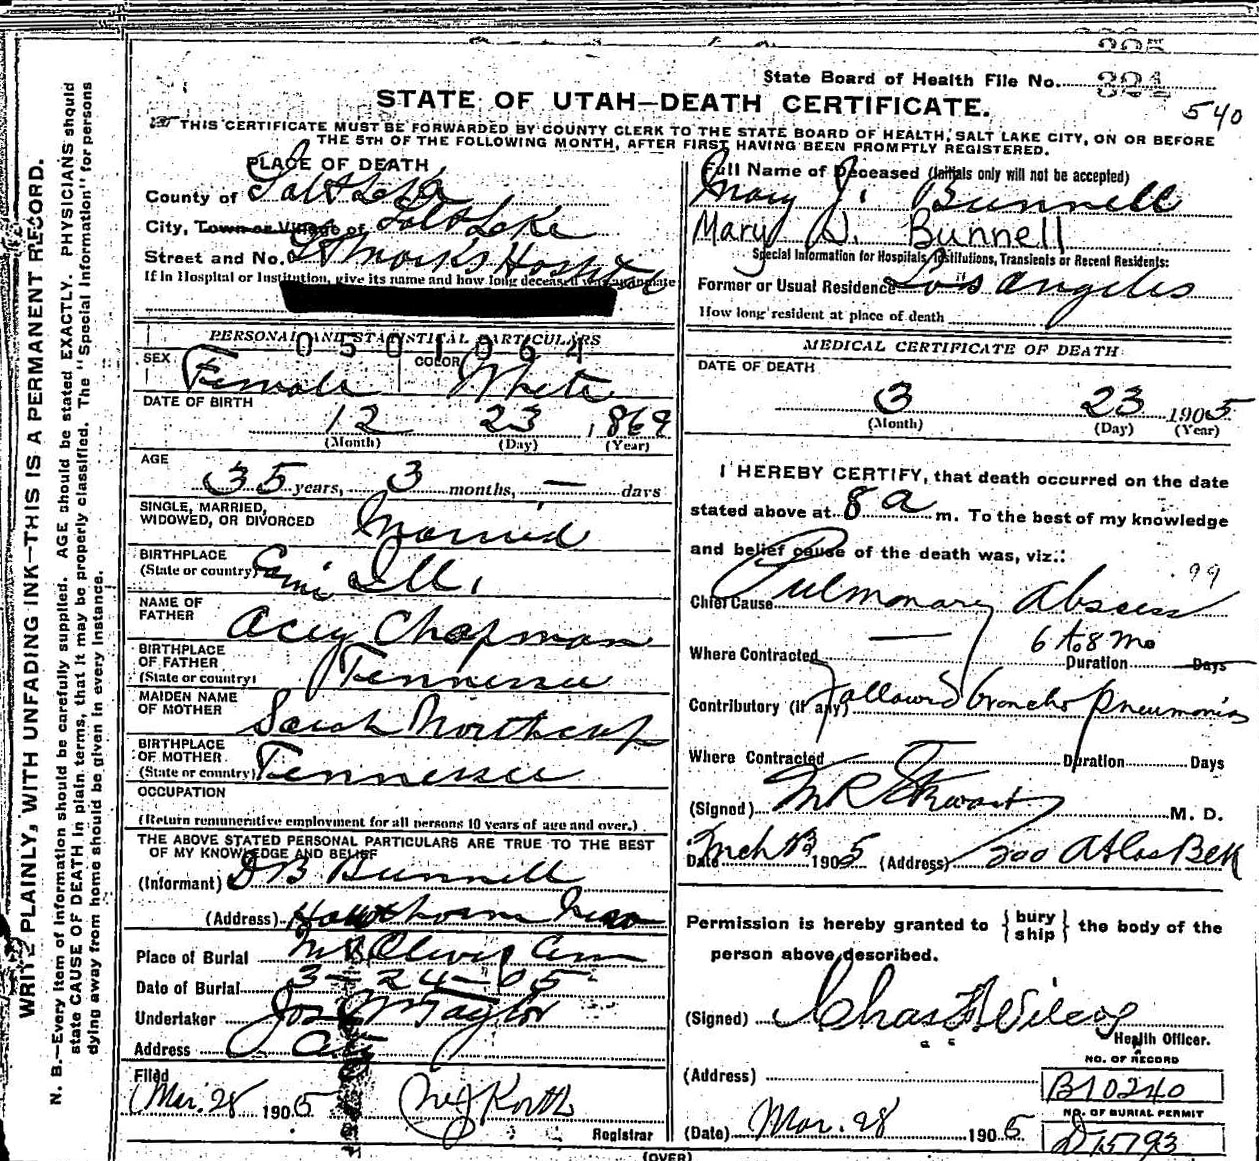 State Board of Health File No. 321
540
STATE OF UTAH—DEATH CERTIFICATE.
THIS CERTIFICATE MUST BE FORWARDED BY COUNTY CLERK TO THE STATE BOARD OF HEALTH, SALT LAKE CITY, ON OR BEFORE
THE 5TH OF THE FOLLOWING MONTH, AFTER FIRST HAVING BEEN PROMPTLY REGISTERED.
WRITE PLAINLY, WITH UNFADING INK—THIS IS A PERMANENT RECORD.
N. B.—Every item of information should be carefully supplied. AGE should be stated EXACTLY. PHYSICIANS should
state CAUSE OF DEATH in plain terms, that it may be properly classified. The "Special Information" for persons
dying away from home should be given in every instance.
PLACE OF DEATH
County of Salt Lake
City, Town or Village of Salt Lake
Street and No. St Marks Hospital
If in Hospital or Institution, give its name and how long deceased was an inmate
PERSONAL AND STATISTICAL PARTICULARS
0501064
SEX Female COLOR White
DATE OF BIRTH
12 23 1869
(Month) (Day) (Year)
AGE
35 years, 3 months, — days
SINGLE, MARRIED,
WIDOWED, OR DIVORCED Married
BIRTHPLACE
(State or country) Ill.
NAME OF
FATHER Acey Chapman
BIRTHPLACE
OF FATHER
(State or country) Tennessee
MAIDEN NAME
OF MOTHER Sarah Northcup
BIRTHPLACE
OF MOTHER
(State or country) Tennessee
OCCUPATION
(Return remunerative employment for all persons 10 years of age and over.)
THE ABOVE STATED PERSONAL PARTICULARS ARE TRUE TO THE BEST
OF MY KNOWLEDGE AND BELIEF
(Informant) D B Bunnell
(Address) Hawthorne
Place of Burial Mt Olivet Cem
Date of Burial 3-24-05
Undertaker Jos Wm Taylor
Address City
Filed
Mar. 28 1905
Registrar
(OVER)
Full Name of Deceased (Initials only will not be accepted)
Mary J. Bunnell
Mary D. Bunnell
Special Information for Hospitals, Institutions, Transients or Recent Residents:
Former or Usual Residence Los Angeles
How long resident at place of death
MEDICAL CERTIFICATE OF DEATH
DATE OF DEATH
3 23 1905
(Month) (Day) (Year)
I HEREBY CERTIFY, that death occurred on the date
stated above at 8 a m. To the best of my knowledge
and belief cause of the death was, viz.:
99
Chief Cause Pulmonary Abscess
6 to 8 mo
Where Contracted — Duration Days
Contributory (if any) followed broncho pneumonia
Where Contracted Duration Days
(Signed) Stewart M. D.
Date Mch 1905 (Address) 200 Atlas Blk
Permission is hereby granted to { bury ship } the body of the
person above described.
(Signed) Chas F Wilcox
Health Officer.
NO. OF RECORD
(Address) B10240
NO. OF BURIAL PERMIT
(Date) Mar. 28 1905 D15793